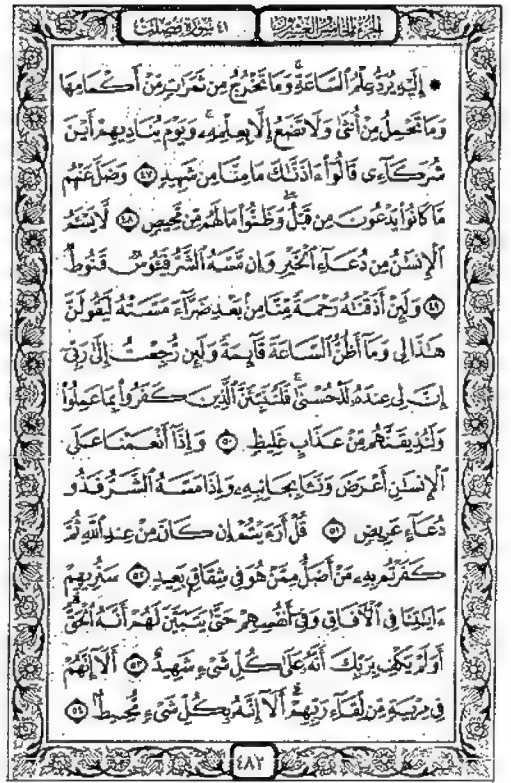 الجزء الخامس والعشرون ٤١ سورة فصلت
۞ إِلَيْهِ يُرَدُّ عِلْمُ ٱلسَّاعَةِۚ وَمَا تَخْرُجُ مِن ثَمَرَٰتٍ مِّنْ أَكْمَامِهَا
وَمَا تَحْمِلُ مِنْ أُنثَىٰ وَلَا تَضَعُ إِلَّا بِعِلْمِهِۦۚ وَيَوْمَ يُنَادِيهِمْ أَيْنَ
شُرَكَآءِى قَالُوٓا۟ ءَاذَنَّٰكَ مَا مِنَّا مِن شَهِيدٍ ٤٧ وَضَلَّ عَنْهُم
مَّا كَانُوا۟ يَدْعُونَ مِن قَبْلُۖ وَظَنُّوا۟ مَا لَهُم مِّن مَّحِيصٍ ٤٨ لَّا يَسْـَٔمُ
ٱلْإِنسَٰنُ مِن دُعَآءِ ٱلْخَيْرِ وَإِن مَّسَّهُ ٱلشَّرُّ فَيَـُٔوسٌ قَنُوطٌ
٤٩ وَلَئِنْ أَذَقْنَٰهُ رَحْمَةً مِّنَّا مِنۢ بَعْدِ ضَرَّآءَ مَسَّتْهُ لَيَقُولَنَّ
هَٰذَا لِى وَمَآ أَظُنُّ ٱلسَّاعَةَ قَآئِمَةً وَلَئِن رُّجِعْتُ إِلَىٰ رَبِّىٓ
إِنَّ لِى عِندَهُۥ لَلْحُسْنَىٰۚ فَلَنُنَبِّئَنَّ ٱلَّذِينَ كَفَرُوا۟ بِمَا عَمِلُوا۟
وَلَنُذِيقَنَّهُم مِّنْ عَذَابٍ غَلِيظٍ ٥٠ وَإِذَآ أَنْعَمْنَا عَلَى
ٱلْإِنسَٰنِ أَعْرَضَ وَنَـَٔا بِجَانِبِهِۦ وَإِذَا مَسَّهُ ٱلشَّرُّ فَذُو
دُعَآءٍ عَرِيضٍ ٥١ قُلْ أَرَءَيْتُمْ إِن كَانَ مِنْ عِندِ ٱللَّهِ ثُمَّ
كَفَرْتُم بِهِۦ مَنْ أَضَلُّ مِمَّنْ هُوَ فِى شِقَاقٍۭ بَعِيدٍ ٥٢ سَنُرِيهِمْ
ءَايَٰتِنَا فِى ٱلْـَٔافَاقِ وَفِىٓ أَنفُسِهِمْ حَتَّىٰ يَتَبَيَّنَ لَهُمْ أَنَّهُ ٱلْحَقُّۗ
أَوَلَمْ يَكْفِ بِرَبِّكَ أَنَّهُۥ عَلَىٰ كُلِّ شَىْءٍ شَهِيدٌ ٥٣ أَلَآ إِنَّهُمْ
فِى مِرْيَةٍ مِّن لِّقَآءِ رَبِّهِمْۗ أَلَآ إِنَّهُۥ بِكُلِّ شَىْءٍ مُّحِيطٌۢ ٥٤
٤٨٢